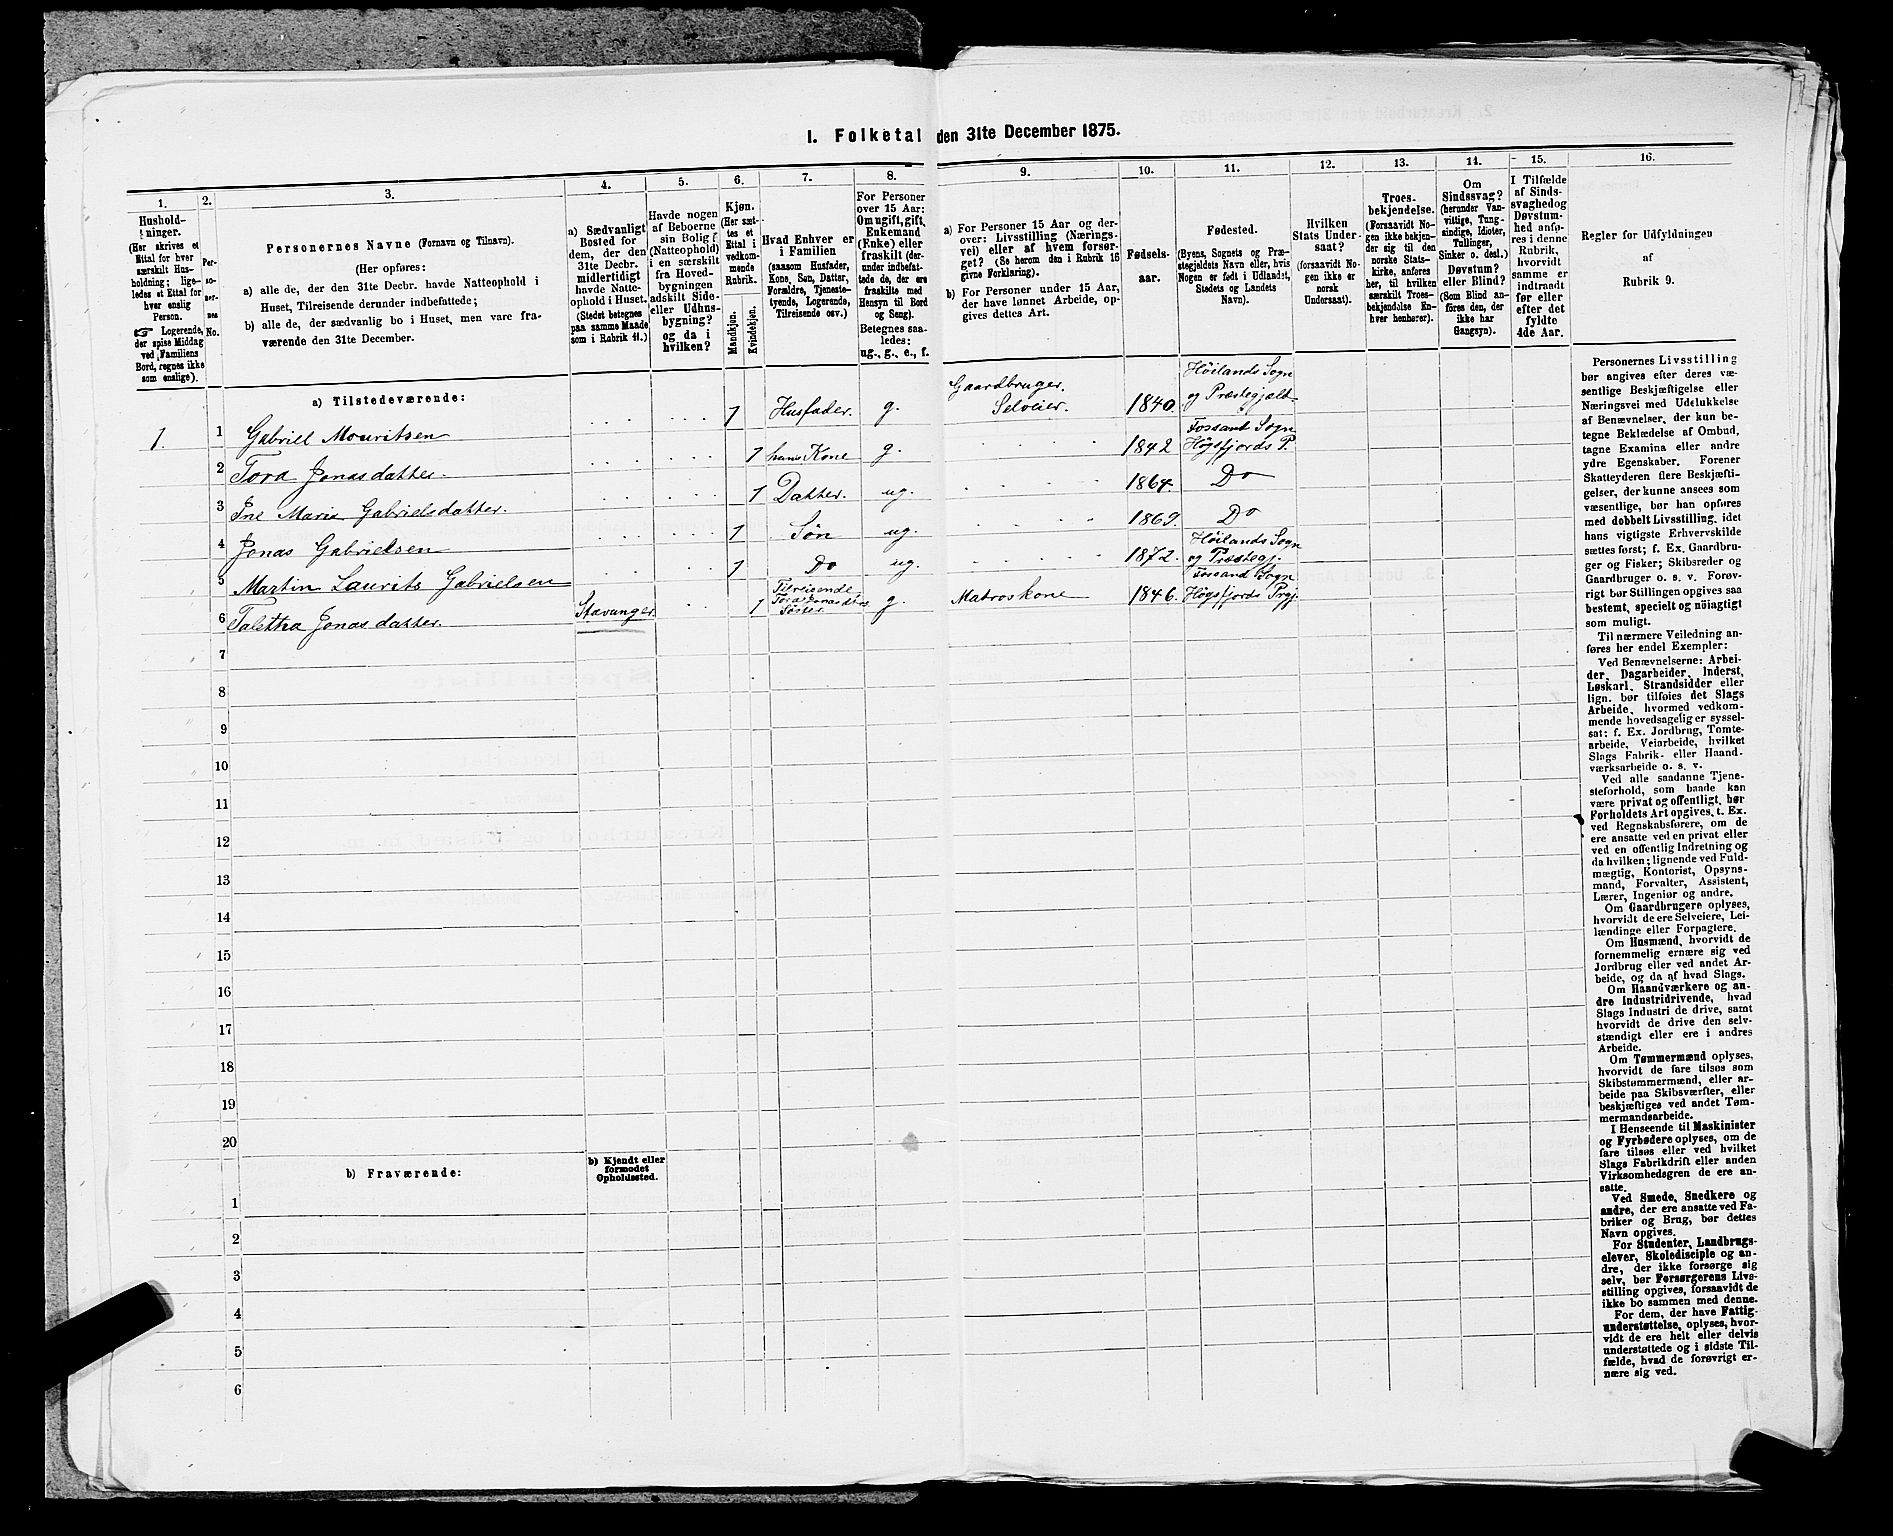 I. Folketal den 31te December 1875.
1.
Hushold-
ninger.
(Her skrives et
Ettal for hver
særskilt Hus-
holdning; lige-
ledes et Ettal for
hver enslig
Person.
☞ Logerende,
der spise Middag
ved Familiens
Bord, regnes ikke
som enslige).
2.
Per-
so-
ner-
nes
No.
3.
Personernes Navne (Fornavn og Tilnavn).
(Her opføres:
a) alle de, der den 31te Decbr. havde Natteophold i
Huset, Tilreisende derunder indbefattede;
b) alle de, der sædvanlig bo i Huset, men vare fra-
værende den 31te December.
4.
a) Sædvanligt
Bosted for
dem, der den
31te Decbr.
midlertidigt
havde Natte-
ophold i Huset.
(Stedet betegnes
paa samme Maade
som i Rubrik 11.)
5.
Havde nogen
af Beboerne
sin Bolig
(Natteophold)
i en særskilt
fra Hoved-
bygningen
adskilt Side-
eller Udhus-
bygning?
og da i
hvilken?
6.
Kjøn.
(Her sæt-
tes et
Ettal i
vedkom-
mende
Rubrik.
Mandkjøn.
Kvindekjøn.
7.
Hvad Enhver er
i Familien
(saasom Husfader,
Kone, Søn, Datter,
Forældre, Tjeneste-
tyende, Logerende,
Tilreisende osv.)
8.
For Personer
over 15 Aar:
Om ugift, gift,
Enkemand
(Enke) eller
fraskilt (der-
under indbefat-
tede de, der ere
fraskilte med
Hensyn til Bord
og Seng).
Betegnes saa-
ledes:
ug., g., e., f.
9.
a) For Personer 15 Aar og der-
over: Livsstilling (Nærings-
vei) eller af hvem forsør-
get? (Se herom den i Rubrik 16
givne Forklaring).
b) For Personer under 15 Aar,
der have lønnet Arbeide, op-
gives dettes Art.
10.
Fødsels-
aar.
11.
Fødested.
(Byens, Sognets og Præ-
stegjeldets Navn eller, hvis
Nogen er født i Udlandet,
Stedets og Landets
Navn).
12.
Hvilken
Stats Under-
saat?
(forsaavidt No-
gen ikke er
norsk
Undersaat).
13.
Troes-
bekjendelse.
(Forsaavidt No-
gen ikke bekjen-
der sig til den
norske Stats-
kirke, anføres
her, til hvilken
særskilt Troes-
bekjendelse En-
hver henhører).
14.
Om
Sindssvag?
(herunder Van-
vittige, Tung-
sindige, Idioter,
Tullinger,
Sinker o. desl.)
Døvstum?
eller Blind?
(Som Blind an-
føres den, der
ikke har
Gangsyn).
15.
I Tilfælde
af Sinds-
svaghed og
Døvstum-
hed anfø-
res i denne
Rubrik,
hvorvidt
samme er
indtraadt
før eller
efter det
fyldte
4de Aar.
16.
Regler for Udfyldningen
af
Rubrik 9.
a) Tilstedeværende:
1. 1 Gabriell Mouritsen 1 Husfader. g. Gaardbruger. Selveier. 1840. Höilands Sogn og Præstegjeld.
2 Tora Jonasdatter. 1 hans Kone g. 1842 Fossant Sogn Högsfjords P.
3 Ine Marie Gabrielsdatter. 1 Datter. ug. 1864. Do
4 Jonas Gabrielsen 1 Søn ug. 1869. Do
5 Martin Laurits Gabrielsen 1 Do ug. 1872. Höilands Sogn og Præstegj.
6 Talettha Jonasdatter. Stavanger. 1 Tilreisende Tora Jonasdtrs Søster. g. Matroskone 1846. Fossand Sogn Högsfjords Prgj.
7
8
9
10
11
12
13
14
15
16
17
18
19
20
b) Fraværende:
b) Kjendt eller
formodet
Opholdssted.
1
2
3
4
5
6
Personernes Livsstilling
bør angives efter deres væ-
sentlige Beskjæftigelse eller
Næringsvei med Udelukkelse
af Benævnelser, der kun be-
tegne Beklædelse af Ombud,
tagne Examina eller andre
ydre Egenskaber. Forener
Skatteyderen flere Beskjæfti-
gelser, der kunne ansees som
væsentlige, bør han opføres
med dobbelt Livsstilling, idet
hans vigtigste Erhvervskilde
sættes først; f. Ex. Gaardbru-
ger og Fisker; Skibsreder og
Gaardbruger o. s. v. Forøv-
rigt bør Stillingen opgives saa
bestemt, specielt og nöiagtigt
som muligt.
Til nærmere Veiledning an-
føres her endel Exempler:
Ved Benævnelserne: Arbei-
der, Dagarbeider, Inderst,
Løskarl, Strandsidder eller
lign. bør tilføies det Slags
Arbeide, hvormed vedkom-
mende hovedsagelig er syssel-
sat: f. Ex. Jordbrug, Tomte-
arbeide, Veiarbeide, hvilket
Slags Fabrik- eller Haand-
værksarbeide o. s. v.
Ved alle saadanne Tjene-
steforhold, som baade kan
være privat og offentligt, bør
Forholdets Art opgives, t. Ex.
ved Regnskabsførere, om de
ere ansatte ved en privat eller
ved en offentlig Indretning og
da hvilken; lignende ved Fuld-
mægtig, Kontorist, Opsyns-
mand, Forvalter, Assistent,
Lærer, Ingeniør og andre.
Om Gaardbrugere oplyses,
hvorvidt de ere Selveiere, Lei-
lændinge eller Forpagtere.
Om Husmænd, hvorvidt de
fornemmelig ernære sig ved
Jordbrug eller ved andet Ar-
beide, og da af hvad Slags.
Om Haandværkere og an-
dre Industridrivende, hvad
Slags Industri de drive, samt
hvorvidt de drive den selv-
stændigt eller ere i andres
Arbeide.
Om Tømmermænd oplyses,
hvorvidt de fare tilsøs som
Skibstømmermænd, eller ar-
beide paa Skibsværfter, eller
beskjæftiges ved andet Tøm-
mermandsarbeide.
I Henseende til Maskinister
og Fyrbødere oplyses, om de
fare tilsøs eller ved hvilket
Slags Fabrikdrift eller anden
Virksomhedsgren de ere an-
satte.
Ved Smede, Snedkere og
andre, der ere ansatte ved Fa-
briker og Brug, bør dettes
Navn opgives.
For Studenter, Landbrugs-
elever, Skoledisciple og an-
dre, der ikke forsørge sig
selv, bør Forsørgerens Livs-
stilling opgives, forsaavidt de
ikke bo sammen med denne.
For dem, der have Fattig-
understøttelse, oplyses, hvor-
vidt de ere helt eller delvis
understøttede og i sidste Til-
fælde, hvad de forøvrigt er-
nære sig ved.